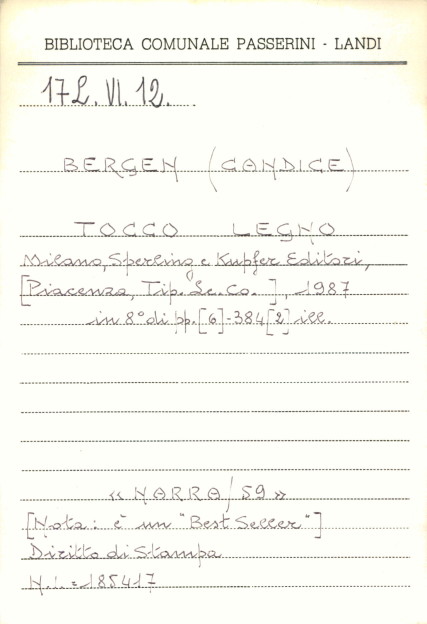 BIBLIOTECA COMUNALE PASSERINI - LANDI
17L. VI. 12.
BERGEN (CANDICE)
TOCCO LEGNO
Milano, Sperling e Kupfer Editori,
[Piacenza, Tip. Le.Co. ], 1987
in 8° di pp. [6]-384[2] ill.
« NARRA/59 »
[Nota: è un "Best Seller"]
Diritto di Stampa
N.i. = 185417